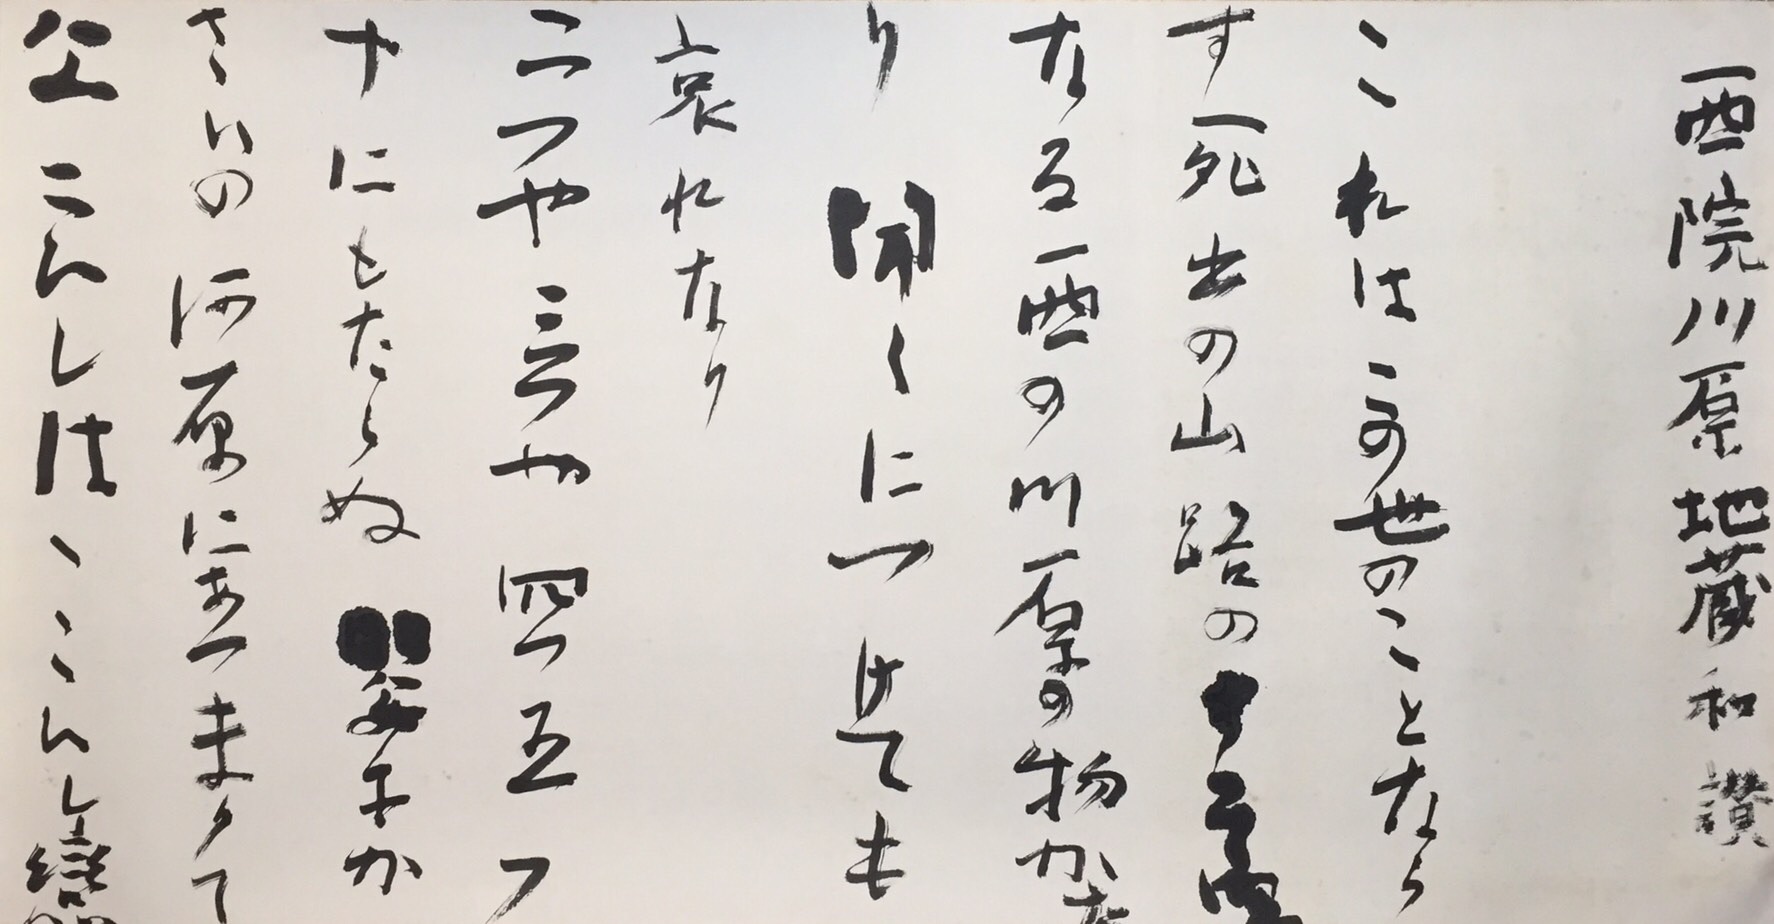 西院川原地蔵和讃
これはこの世のことなら
す死出の山路のすそ
なる西の川原の物かた
り聞くにつけても
哀れなり
二つや三つや四つ五つ
十にもたらぬ
さいの河原にあつまりて
父こひし母こひし